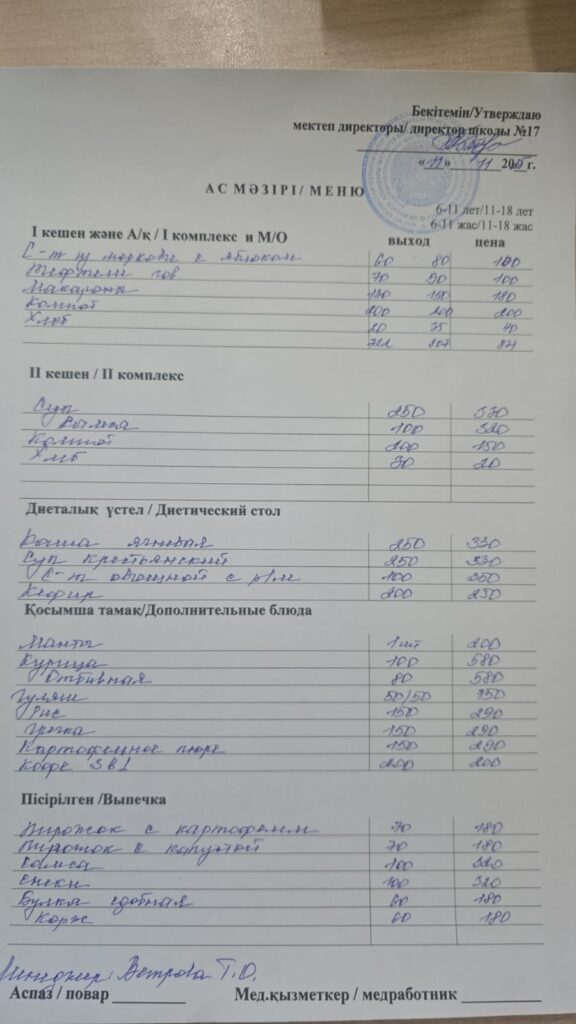 Бекітемін/Утверждаю
мектеп директоры/ директор школы №17
« 11 » 11 2025 г.
АС МӘЗІРІ/ МЕНЮ
6-11 лет/11-18 лет
6-11 жас/11-18 жас
І кешен және А/қ / І комплекс и М/О выход цена
С-т из моркови с яблоком 60 80 100
Тефтели гов 70 90 100
Макароны 150 180
Компот 200 200 200
Хлеб 20 35 40
807 871
ІІ кешен / ІІ комплекс
Суп 250 330
100 320
Компот 200 150
Хлеб 30 20
Диеталық үстел / Диетический стол
Каша ячневая 250 330
Суп крестьянский 250 330
С-т овощной с р/м 100 350
Кефир 200 250
Қосымша тамақ/Дополнительные блюда
Манты 1 шт 200
Курица 100 580
Отбивная 80 580
Гуляш 50/50 350
Рис 150 290
Гречка 150 290
Картофельное пюре 150 290
Кофе 3в1 200 200
Пісірілген /Выпечка
Пирожок с картофелем 70 180
Пирожок с капустой 70 180
Самса 100 320
100 320
Булка сдобная 60 180
Корж 60 180
Менеджер: Ветрова Т.О.
Аспаз / повар Мед.қызметкер / медработник